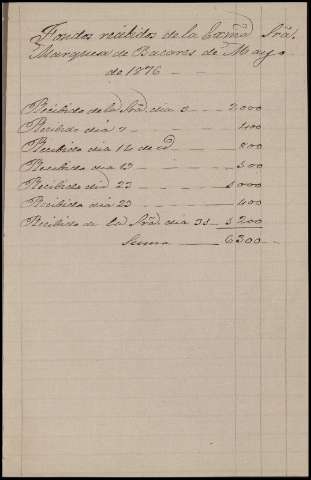 Fondos recibidos de la Exma Sra.
Marquesa de Bacares de Mayo
de 1876
Recibido de la Sra. dia 2 2.000
Recibido dia 400
Recibido dia 12 de id. 800
Recibido dia 19 500
Recibido dia 23
Recibido dia 25 400
Recibido de la Sra. dia 31 200
Suma 6300